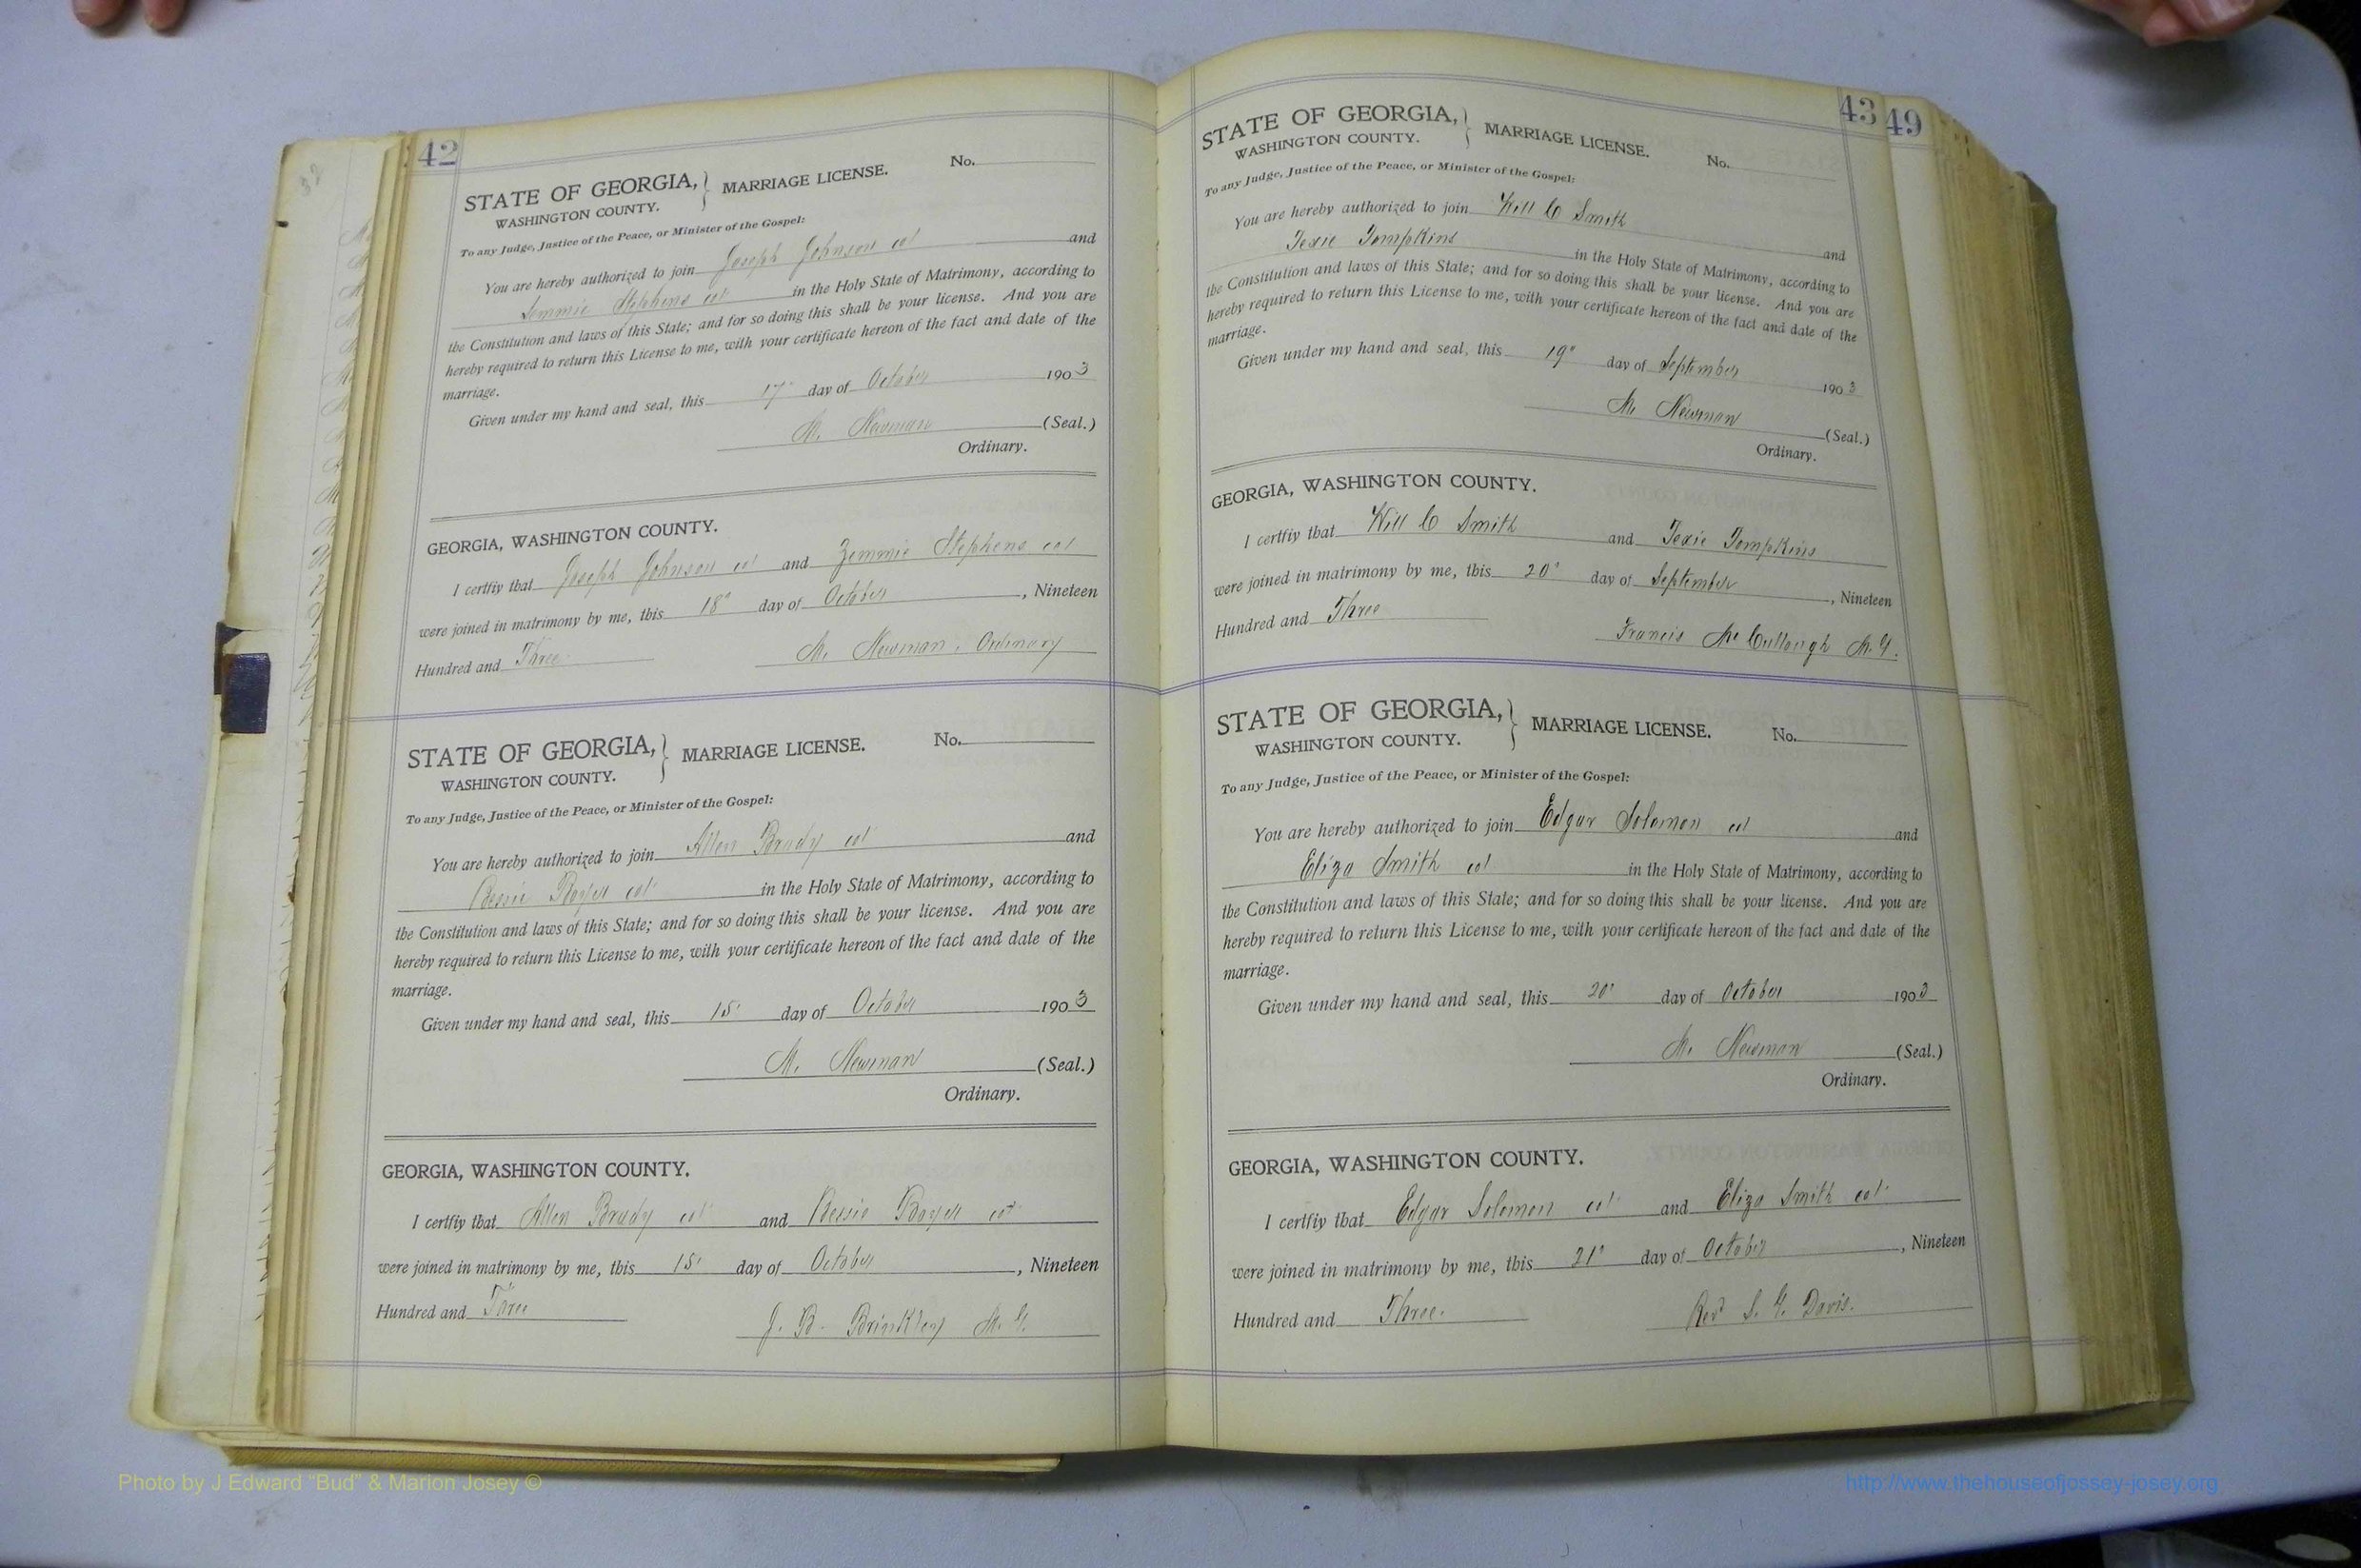 42
STATE OF GEORGIA, } MARRIAGE LICENSE. No.
WASHINGTON COUNTY.
To any Judge, Justice of the Peace, or Minister of the Gospel:
You are hereby authorized to join Joseph Johnson col and
Stephens col in the Holy State of Matrimony, according to
the Constitution and laws of this State; and for so doing this shall be your license. And you are
hereby required to return this License to me, with your certificate hereon of the fact and date of the
marriage.
Given under my hand and seal, this 17" day of October 1903
M. Newman (Seal.)
Ordinary.
GEORGIA, WASHINGTON COUNTY.
I certfiy that Joseph Johnson col and Zemmie Stephens col
were joined in matrimony by me, this 18" day of October, Nineteen
Hundred and Three M. Newman, Ordinary
STATE OF GEORGIA, } MARRIAGE LICENSE. No.
WASHINGTON COUNTY.
To any Judge, Justice of the Peace, or Minister of the Gospel:
You are hereby authorized to join Allen Brady col and
Bessie col in the Holy State of Matrimony, according to
the Constitution and laws of this State; and for so doing this shall be your license. And you are
hereby required to return this License to me, with your certificate hereon of the fact and date of the
marriage.
Given under my hand and seal, this 15" day of October 1903
M. Newman (Seal.)
Ordinary.
GEORGIA, WASHINGTON COUNTY.
I certfiy that Allen Brady col and Bessie col
were joined in matrimony by me, this 15" day of October, Nineteen
Hundred and Three J. B. Brinkley M. G.
43
49
STATE OF GEORGIA, } MARRIAGE LICENSE. No.
WASHINGTON COUNTY.
To any Judge, Justice of the Peace, or Minister of the Gospel:
You are hereby authorized to join Will C Smith
Texie Tompkins and
in the Holy State of Matrimony, according to
the Constitution and laws of this State; and for so doing this shall be your license. And you are
hereby required to return this License to me, with your certificate hereon of the fact and date of the
marriage.
Given under my hand and seal, this 19" day of September 1903
M. Newman (Seal.)
Ordinary.
GEORGIA, WASHINGTON COUNTY.
I certfiy that Will C Smith and Texie Tompkins
were joined in matrimony by me, this 20" day of September, Nineteen
Hundred and Three Francis McCullough M. G.
STATE OF GEORGIA, } MARRIAGE LICENSE. No.
WASHINGTON COUNTY.
To any Judge, Justice of the Peace, or Minister of the Gospel:
You are hereby authorized to join Edgar Solomon col and
Eliza Smith col in the Holy State of Matrimony, according to
the Constitution and laws of this State; and for so doing this shall be your license. And you are
hereby required to return this License to me, with your certificate hereon of the fact and date of the
marriage.
Given under my hand and seal, this 20" day of October 1903
M. Newman (Seal.)
Ordinary.
GEORGIA, WASHINGTON COUNTY.
I certfiy that Edgar Solomon col and Eliza Smith col
were joined in matrimony by me, this 21" day of October, Nineteen
Hundred and Three. Revd S. G. Davis.
Photo by J Edward "Bud" & Marion Josey ©
http://www.thehouseofjossey-josey.org